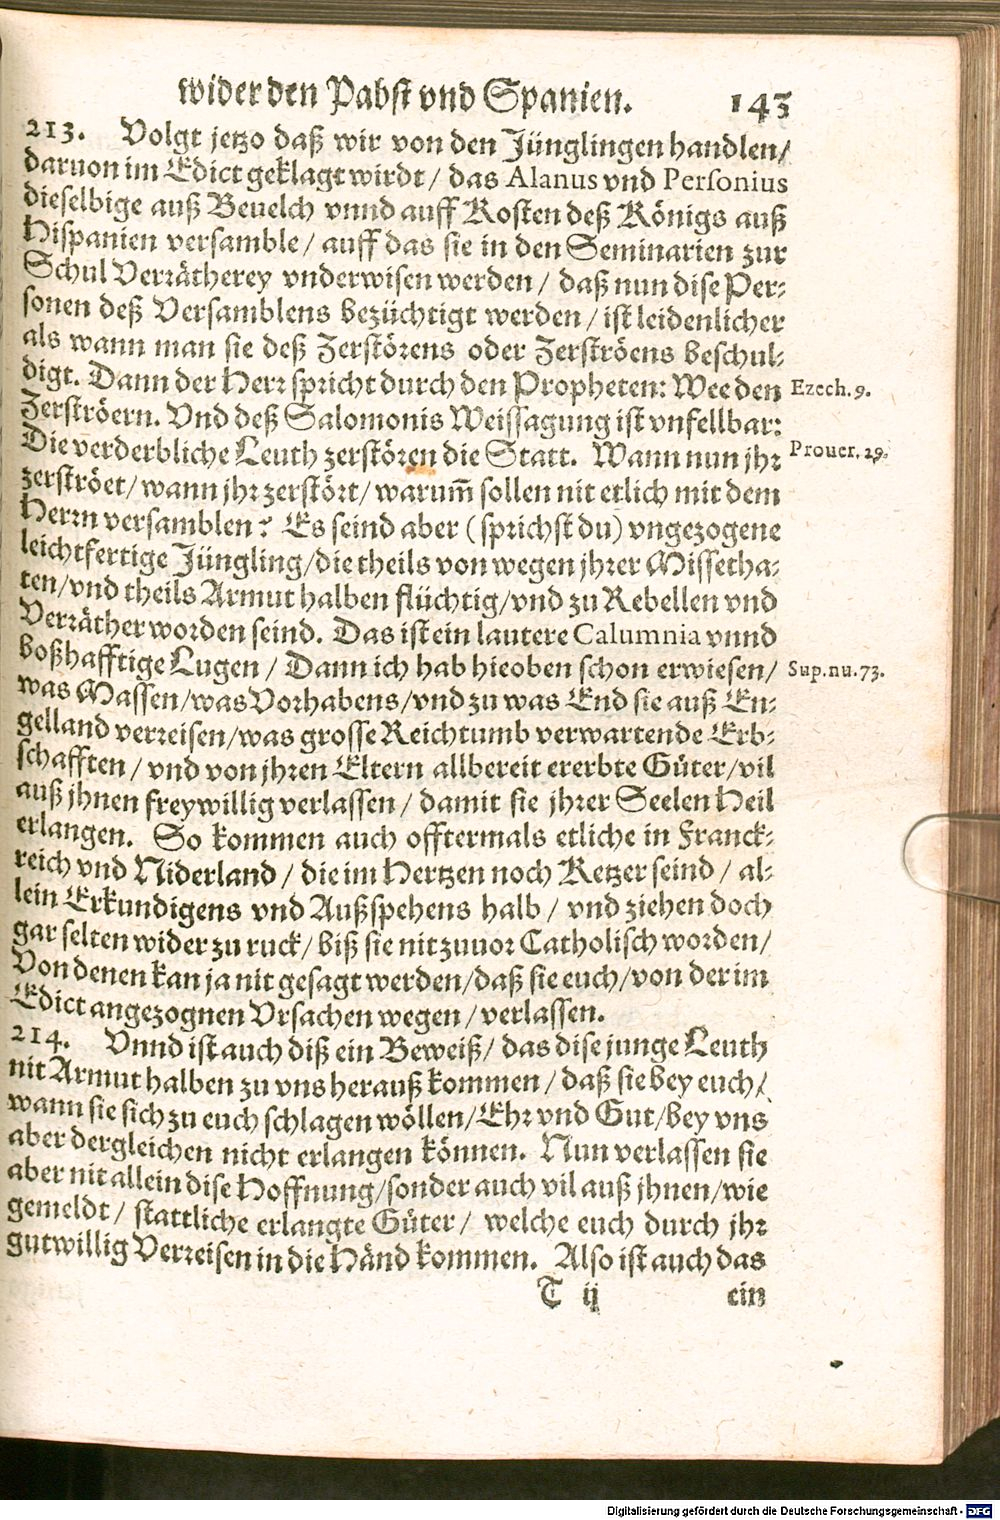 wider den Pabst vnd Spanien. 143
213. Volgt jetzo daß wir von den Jünglingen handlen/
daruon im Edict geklagt wirdt / das Alanus vnd Personius
dieselbige auß Beuelch vnnd auff Kosten deß Königs auß
Hispanien versamble / auff das sie in den Seminarien zur
Schul Verrätherey vnderwisen werden / daß nun dise Per-
sonen deß Versamblens bezüchtigt werden / ist leidenlicher
als wann man sie deß Zerstörens oder Zerströens beschul-
digt. Dann der Herr spricht durch den Propheten: Wee den Ezech. 9.
Zerströern. Vnd deß Salomonis Weissagung ist vnfellbar:
Die verderbliche Leuth zerstören die Statt. Wann nun jhr Prouer. 29.
zerströet / wann jhr zerstört / warum̃ sollen nit etlich mit dem
Herrn versamblen? Es seind aber (sprichst du) vngezogene
leichtfertige Jüngling / die theils von wegen jhrer Missetha-
ten / vnd theils Armut halben flüchtig / vnd zu Rebellen vnd
Verräther worden seind. Das ist ein lautere Calumnia vnnd
boßhafftige Lugen / Dann ich hab hieoben schon erwiesen / Sup. nu. 73.
was Massen / was Vorhabens / vnd zu was End sie auß En-
gelland verreisen / was grosse Reichtumb verwartende Erb-
schafften / vnd von jhren Eltern allbereit ererbte Güter / vil
auß jhnen freywillig verlassen / damit sie jhrer Seelen Heil
erlangen. So kommen auch offtermals etliche in Franck-
reich vnd Niderland / die im Hertzen noch Ketzer seind / al-
lein Erkundigens vnd Außspehens halb / vnd ziehen doch
gar selten wider zu ruck / biß sie nit zuuor Catholisch worden /
Von denen kan ja nit gesagt werden / daß sie euch / von der im
Edict angezognen Vrsachen wegen / verlassen.
214. Vnnd ist auch diß ein Beweiß / das dise junge Leuth
nit Armut halben zu vns herauß kommen / daß sie bey euch /
wann sie sich zu euch schlagen wöllen / Ehr vnd Gut / bey vns
aber dergleichen nicht erlangen können. Nun verlassen sie
aber nit allein dise Hoffnung / sonder auch vil auß jhnen / wie
gemeldt / stattliche erlangte Güter / welche euch durch jhr
gutwillig Verreisen in die Händ kommen. Also ist auch das
T ij ein
Digitalisierung gefördert durch die Deutsche Forschungsgemeinschaft - DFG